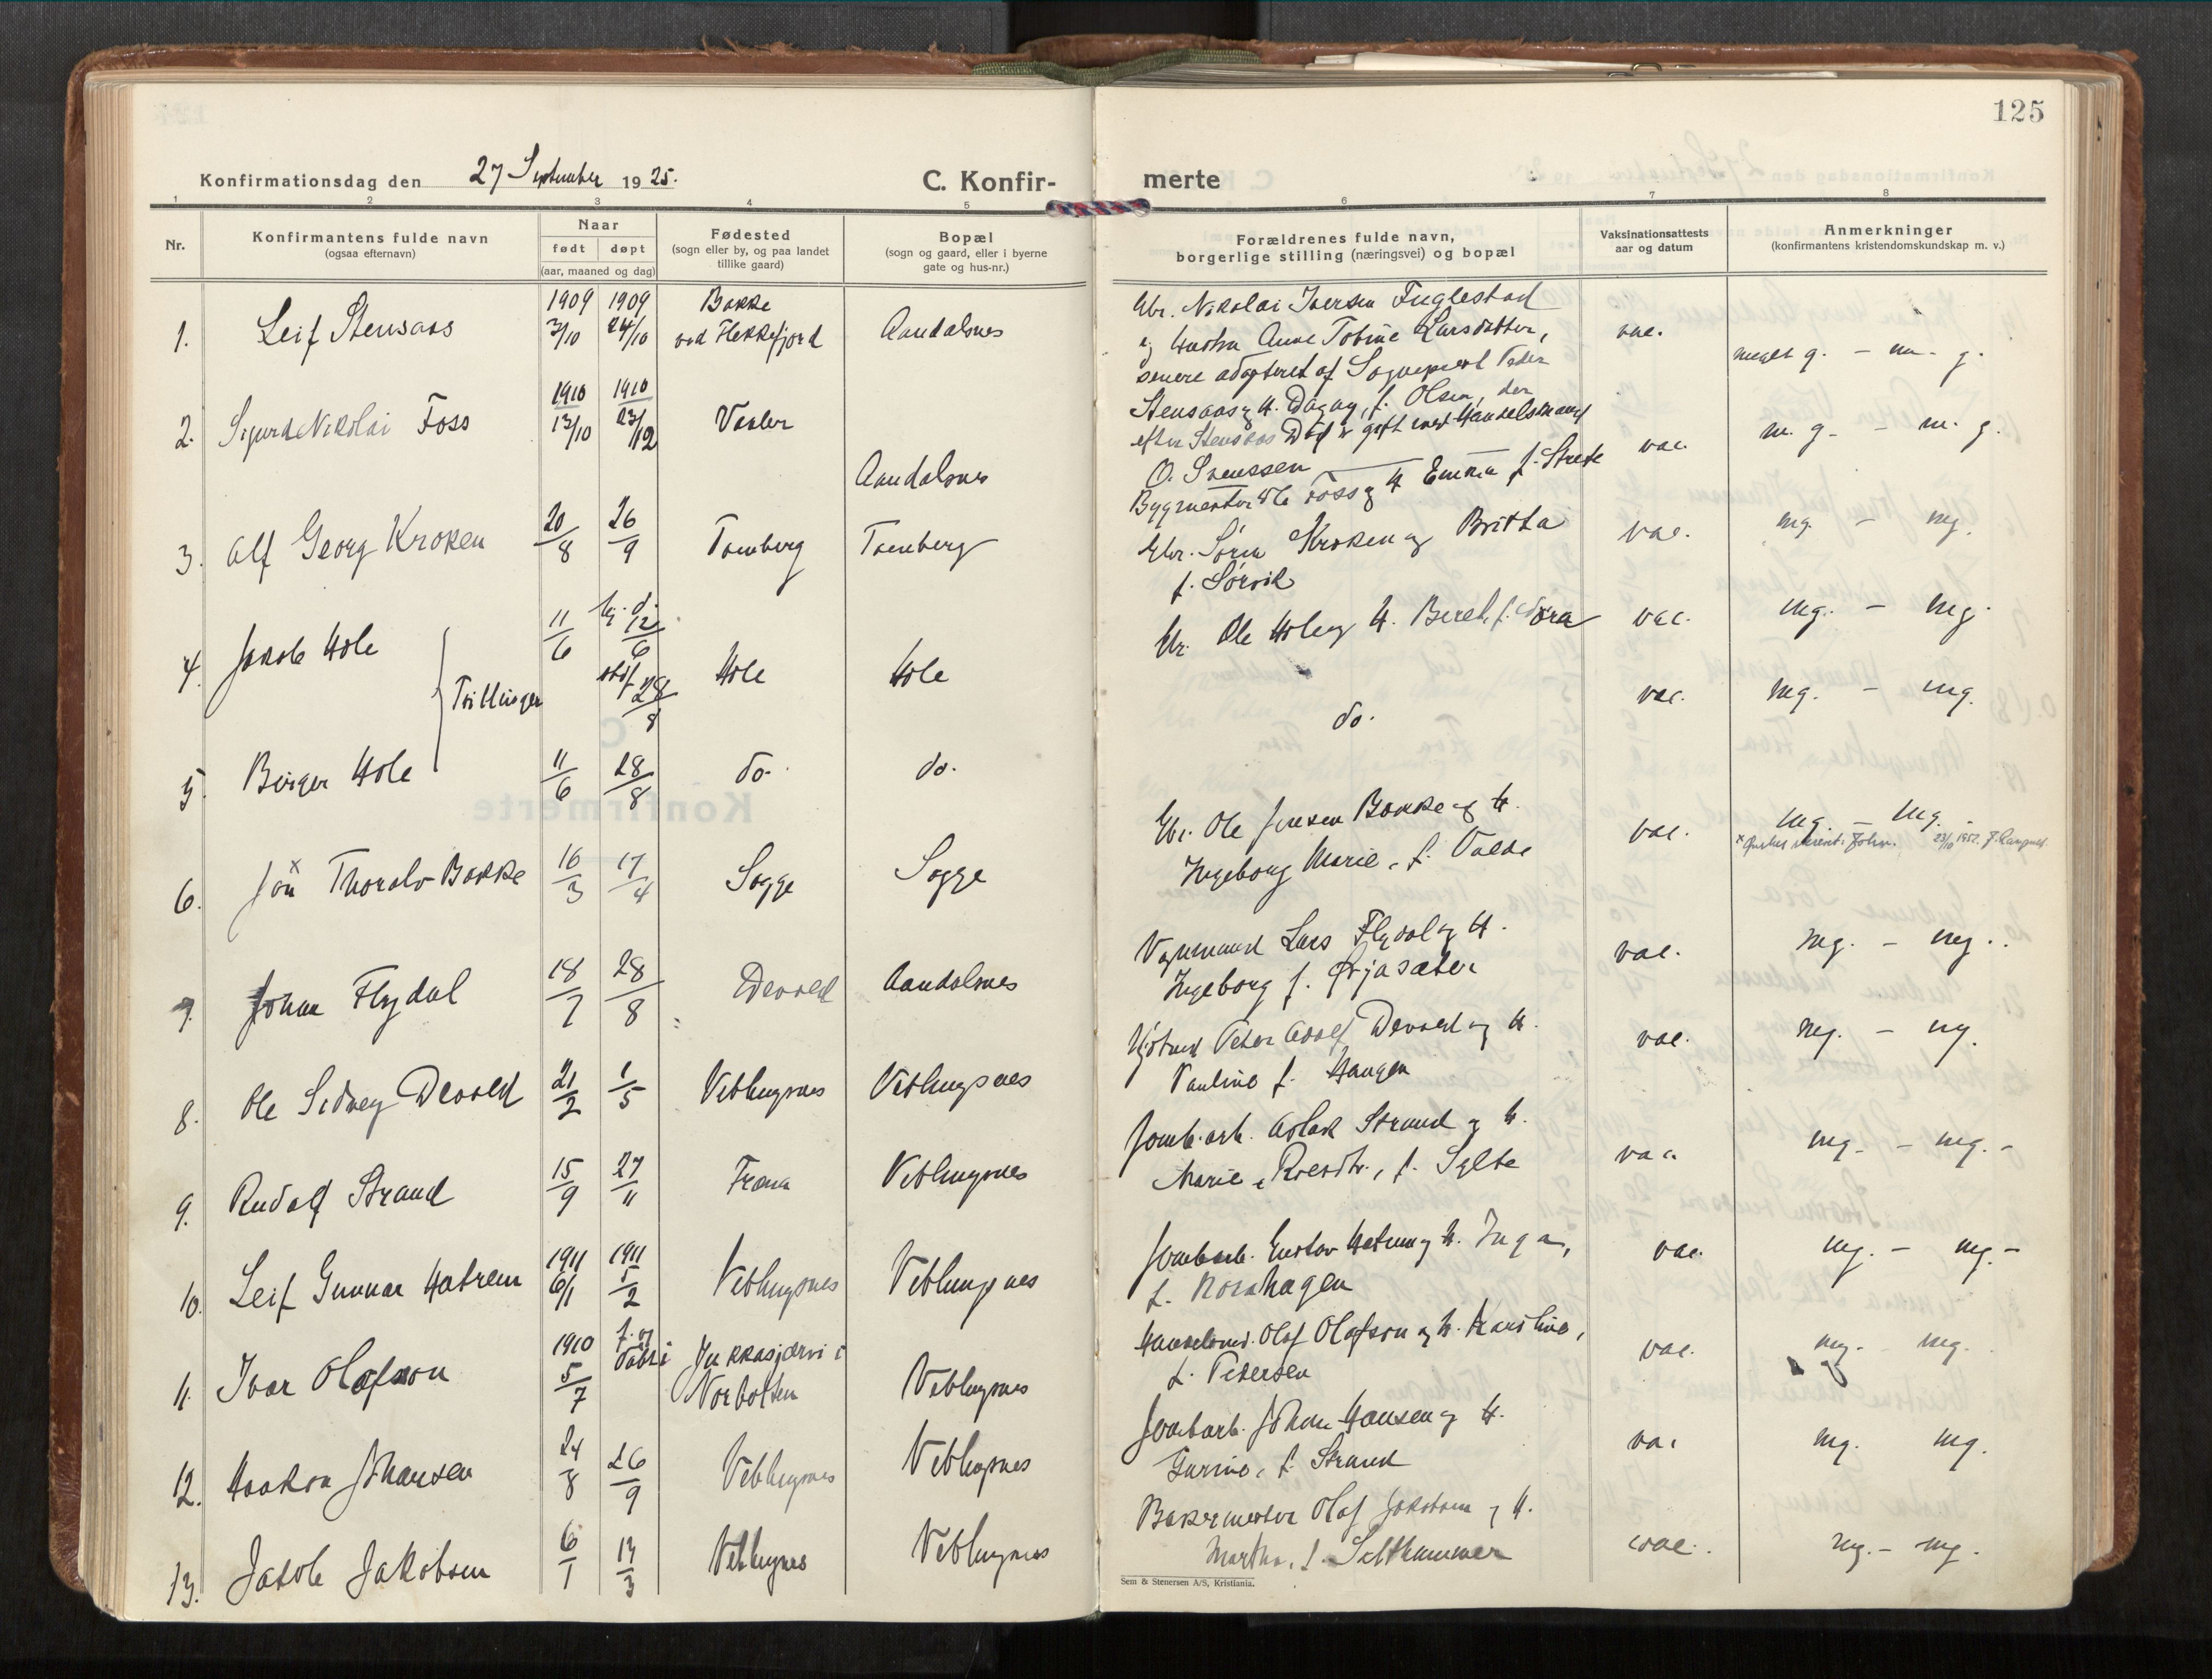 125
Konfirmationsdag den 27 September 1925.
C. Konfir-
merte
1 2 3 4 5 6 7 8
Nr.
Konfirmantens fulde navn
(ogsaa efternavn)
Naar
født døpt
(aar, maaned og dag)
Fødested
(sogn eller by, og paa landet
tillike gaard)
Bopæl
(sogn og gaard, eller i byerne
gate og hus-nr.)
Forældrenes fulde navn,
borgerlige stilling (næringsvei) og bopæl
Vaksinationsattests
aar og datum
Anmerkninger
(konfirmantens kristendomskundskap m. v.)
1. Leif Stensaas 1909 3/10 1909 24/10 Bakke
ved Flekkefjord Aandalsnes
Gbr. Nikolai Iversen Fuglestad
og Hustru Anne Tobine Larsdatter,
senere adopteret af Sogneprest Peder
Stensaas og H. Dagny, f. Olsen, der
efter Stensaas Død er gift med Handelsmand
O. Svenssen
vac. meget g. - m. g.
2. Sigurd Nikolai Foss 1910 13/10 1910 23/12 Vestnes Aandalsnes
Bygmester Ole Foss og H Emma f. Strete
vac. m. g. - m. g.
3. Alf Georg Kroken 20/8 26/9 Tomberg Tomberg
Gbr. Søren Kroken og Britta
f. Sørvik
vac. mg. - mg.
4. Jakob Hole 11/6 hj. d. 12/6 stadf 28/8 Hole Hole
Gbr. Ole Hole og H. Beret, f. Nora
vac. mg. - mg.
Tvillinger
5. Birger Hole 11/6 28/8 do. do.
do.
vac. mg. - mg.
6. Jon x Thoralv Bakke 16/3 17/4 Sogge Sogge
Gbr. Ole Jensen Bakke og H.
Ingeborg Marie, f. Valde
vac. mg. - mg.
x 23/10 1952.
7. Johan Flydal 18/7 28/8 Devold Aandalsnes
Vognmand Lars Flydal og H.
Ingeborg f. Øvjasæter
vac. mg. - mg.
8. Ole Sidney Devold 21/2 1/5 Veblungsnes Veblungsnes
Peter Adolf Devold og H.
Pauline f. Haugen
vac. mg. - mg.
9. Rudolf Strand 15/9 27/11 Fræna Veblungsnes
Jernb.arb. Aslak Strand og H.
Marie f. Sylte
vac. mg. - mg. -
10. Leif Gunnar Hatrem 1911 6/1 1911 5/2 Veblungsnes Veblungsnes
Jernbarb. Gustav Hatrem og H. Inga,
f. Nornhagen
vac. mg. - mg. -
11. Ivar Olafsson 1910 5/7 f. og døbt i Jukkasjærvi i
Norbotten Veblungsnes
Handelsmd. Olof Olofson og H. Karoline,
f. Petersen
vac. mg. mg.
12. Haakon Johansen 24/8 26/9 Veblungsnes Veblungsnes
Jernbarb. Johan Hansen og H.
Gurine, f. Strand
vac mg. mg.
13. Jakob Jakobsen 6/1 13/3 Veblungsnes Veblungsnes
Bakermester Olaf Jakobsen og H.
Martha, f. Setthammer
vac. mg. - mg.
Sem & Stenersen A/S, Kristiania.